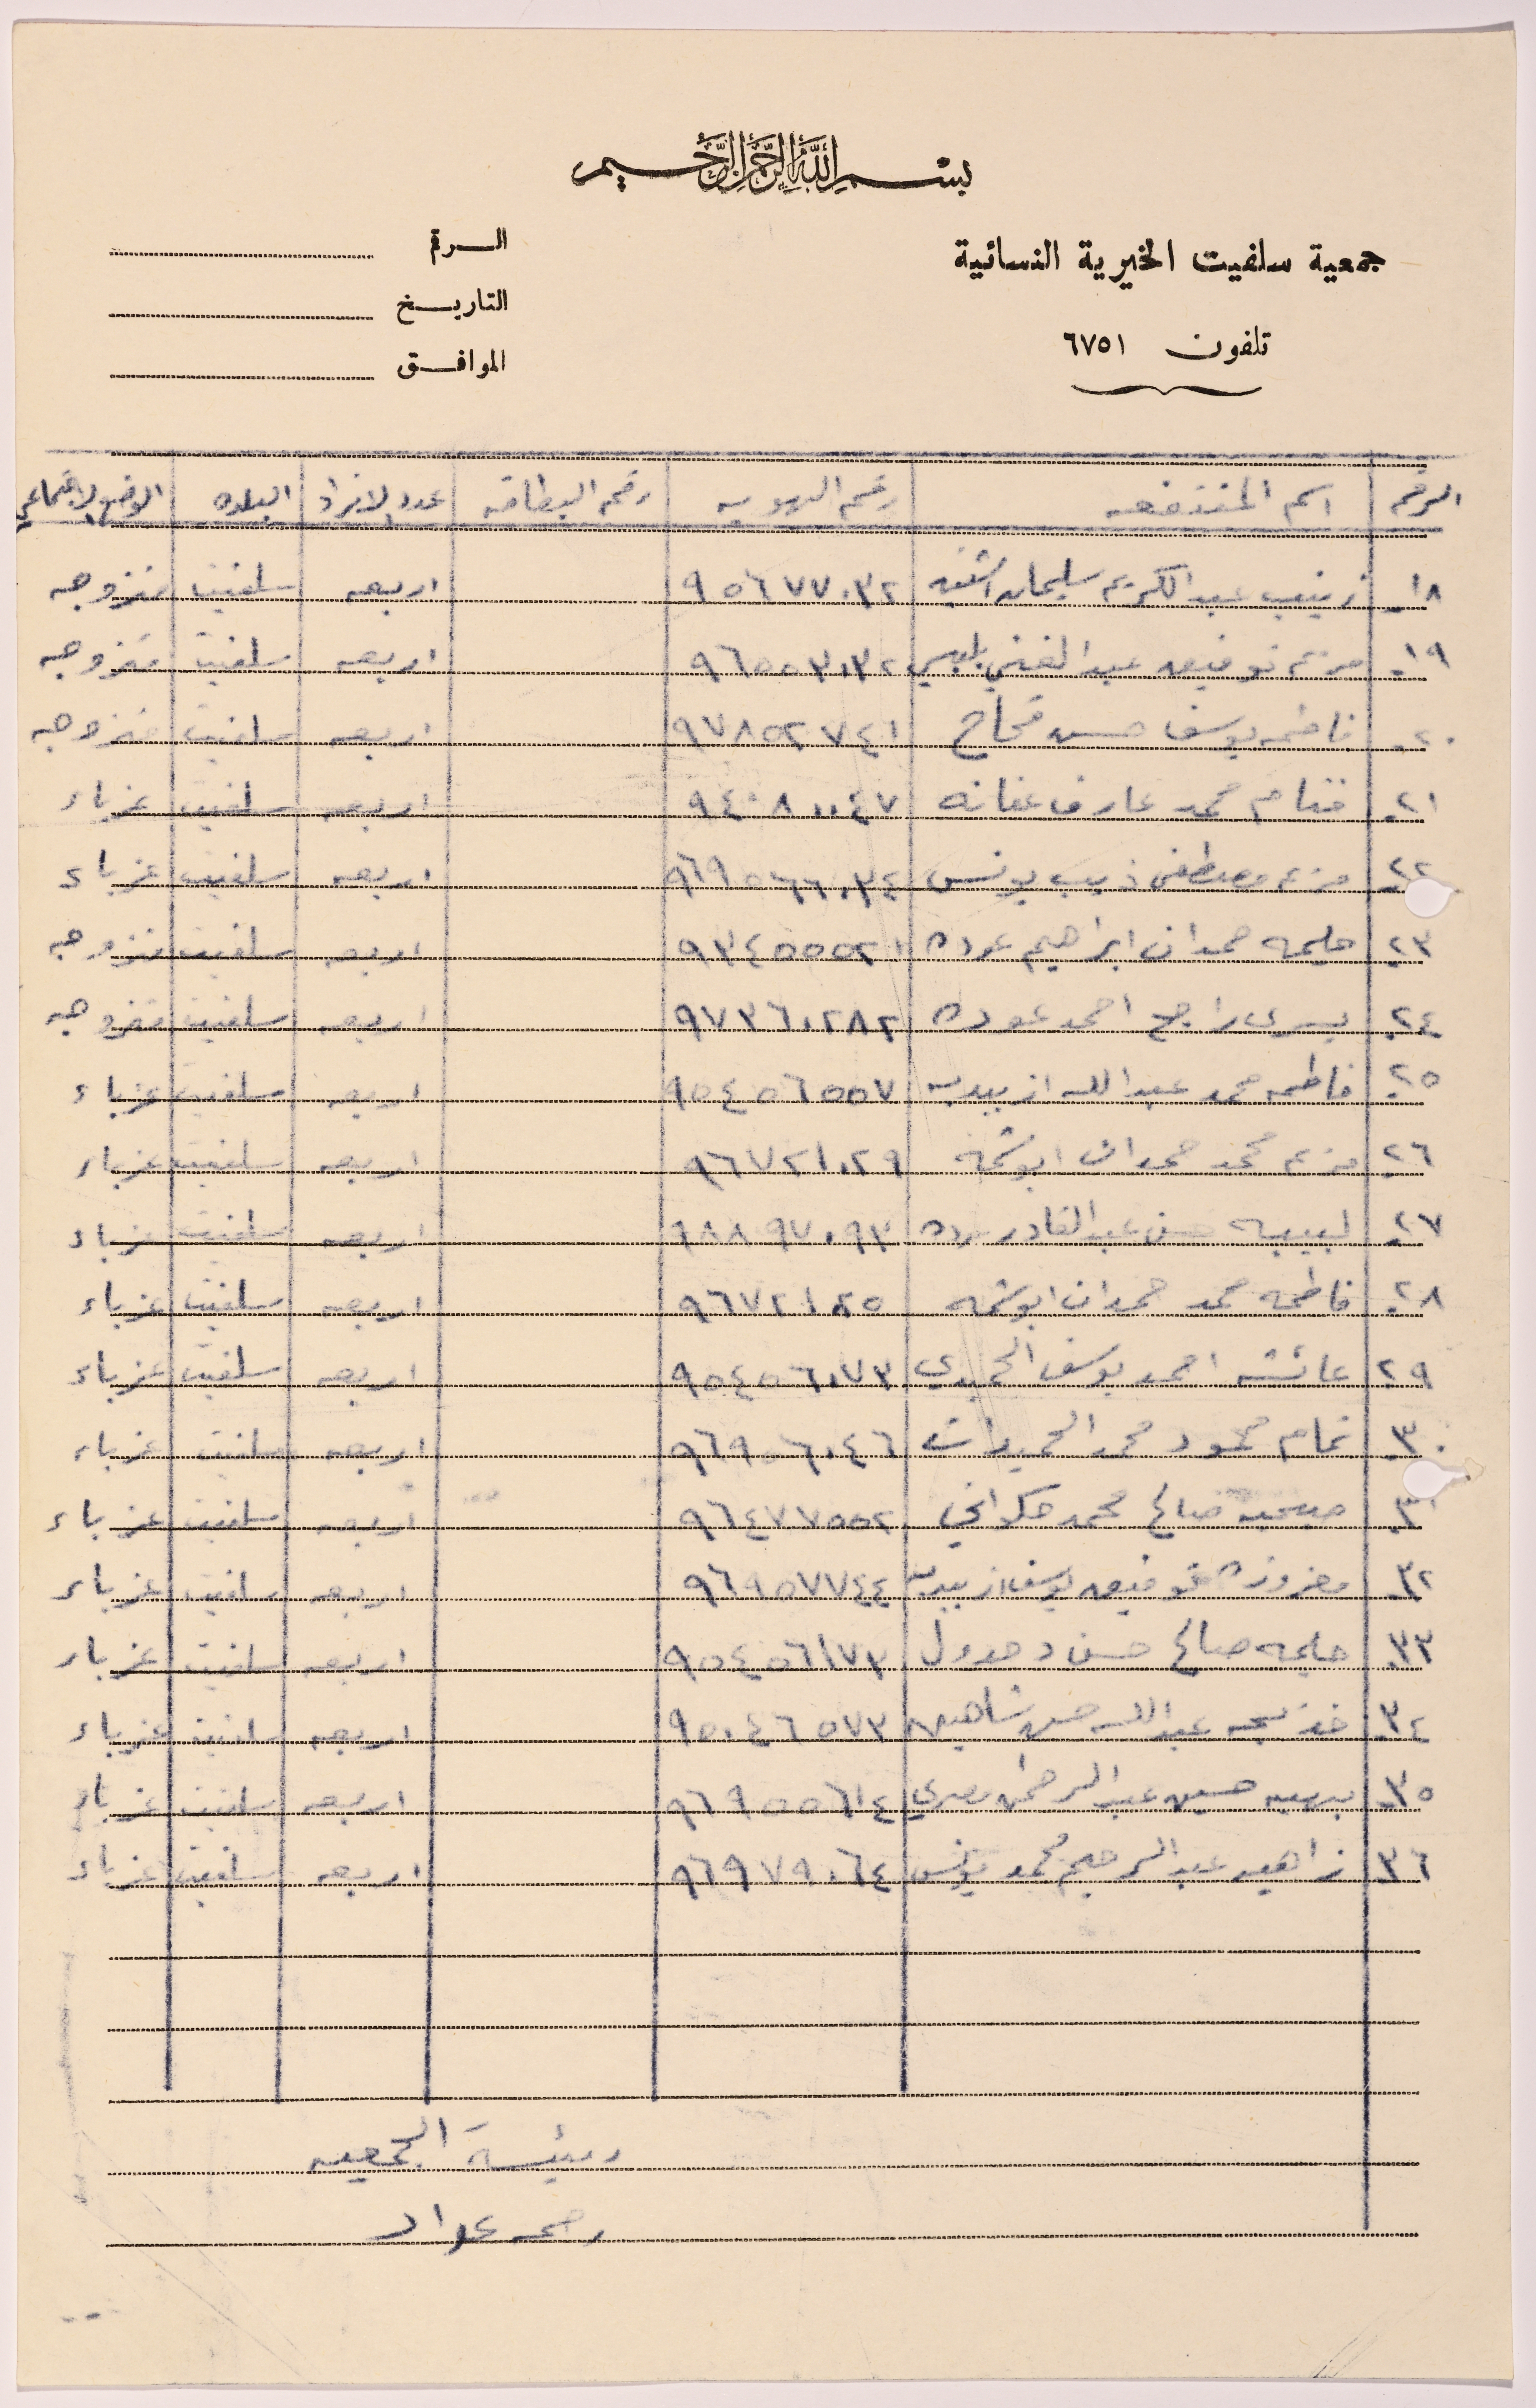 بسم الله الرحمن الرحيم
جمعية سلفيت الخيرية النسائية
تلفون ٦٧٥١
الرقم
التاريخ
الموافق
الرقم اسم المنتفعه رقم الهويه رقم البطاقه عدد الافراد البلده الوضع الاجتماعي
١٨- زينب عبد الكريم سليمان اشتيه ٩٥٦٧٧٠٣٢ اربعه سلفيت متزوجه
١٩- مريم توفيق عبد الغني بلبيسي ٩٦٥٥٣٠٣٢ اربعه سلفيت متزوجه
٢٠- فاطمه يوسف حسن قحاح ٩٧٨٥٢٧٤١ اربعه سلفيت متزوجه
٢١- ختام محمد عارف عفانه ٩٤٠٨٠٠٤٧ اربعه سلفيت عزباء
٢٢- مريم مصطفى ذيب يونس ٩٦٩٥٦٦٠٣٤ اربعه سلفيت عزباء
٢٣- حليمه حمدان ابراهيم عوده ٩٣٤٥٥٥٢١ اربعه سلفيت متزوجه
٢٤- يسرى راجح احمد عوده ٩٧٣٦٠٢٨٢ اربعه سلفيت متزوجه
٢٥- فاطمه محمد عبد الله ازبيديه ٩٥٤٥٦٥٥٧ اربعه سلفيت عزباء
٢٦- مريم محمد حمدان ابوشمه ٩٦٧٢١٠٢٩ اربعه سلفيت عزباء
٢٧- لبيبه حسن عبد القادر ٩٨٨٩٧٠٩٣ اربعه سلفيت عزباء
٢٨- فاطمه محمد حمدان ابوشمه ٩٦٧٢١٠٢٥ اربعه سلفيت عزباء
٢٩ عائشه احمد يوسف الحميدي ٩٥٤٥٦٠٧٣ اربعه سلفيت عزباء
٣٠- تمام محمود محمد الحميدات ٩٦٩٥٦٠٤٦ اربعه سلفيت عزباء
٣١- صبحيه صالح محمد ٩٦٤٧٧٥٥٢ اربعه سلفيت عزباء
٣٢- توفيق يوسف ازبيديه ٩٦٩٥٧٧٤٤ اربعه سلفيت عزباء
٣٣- حليمه صالح حسن ٩٥٤٥٦١٧٣ اربعه سلفيت عزباء
٣٤- خديجه عبد الله حسن شاهين ٩٥٠٤٦٥٧٣ اربعه سلفيت عزباء
٣٥- بهيه حسين عبد الرحمن مصري ٩٦٩٥٥٦١٤ اربعه سلفيت عزباء
٣٦- زاهيه عبد الرحيم محمد يونس ٩٦٩٧٩٠٦٤ اربعه سلفيت عزباء
رئيسة الجمعيه
رحمه عواد